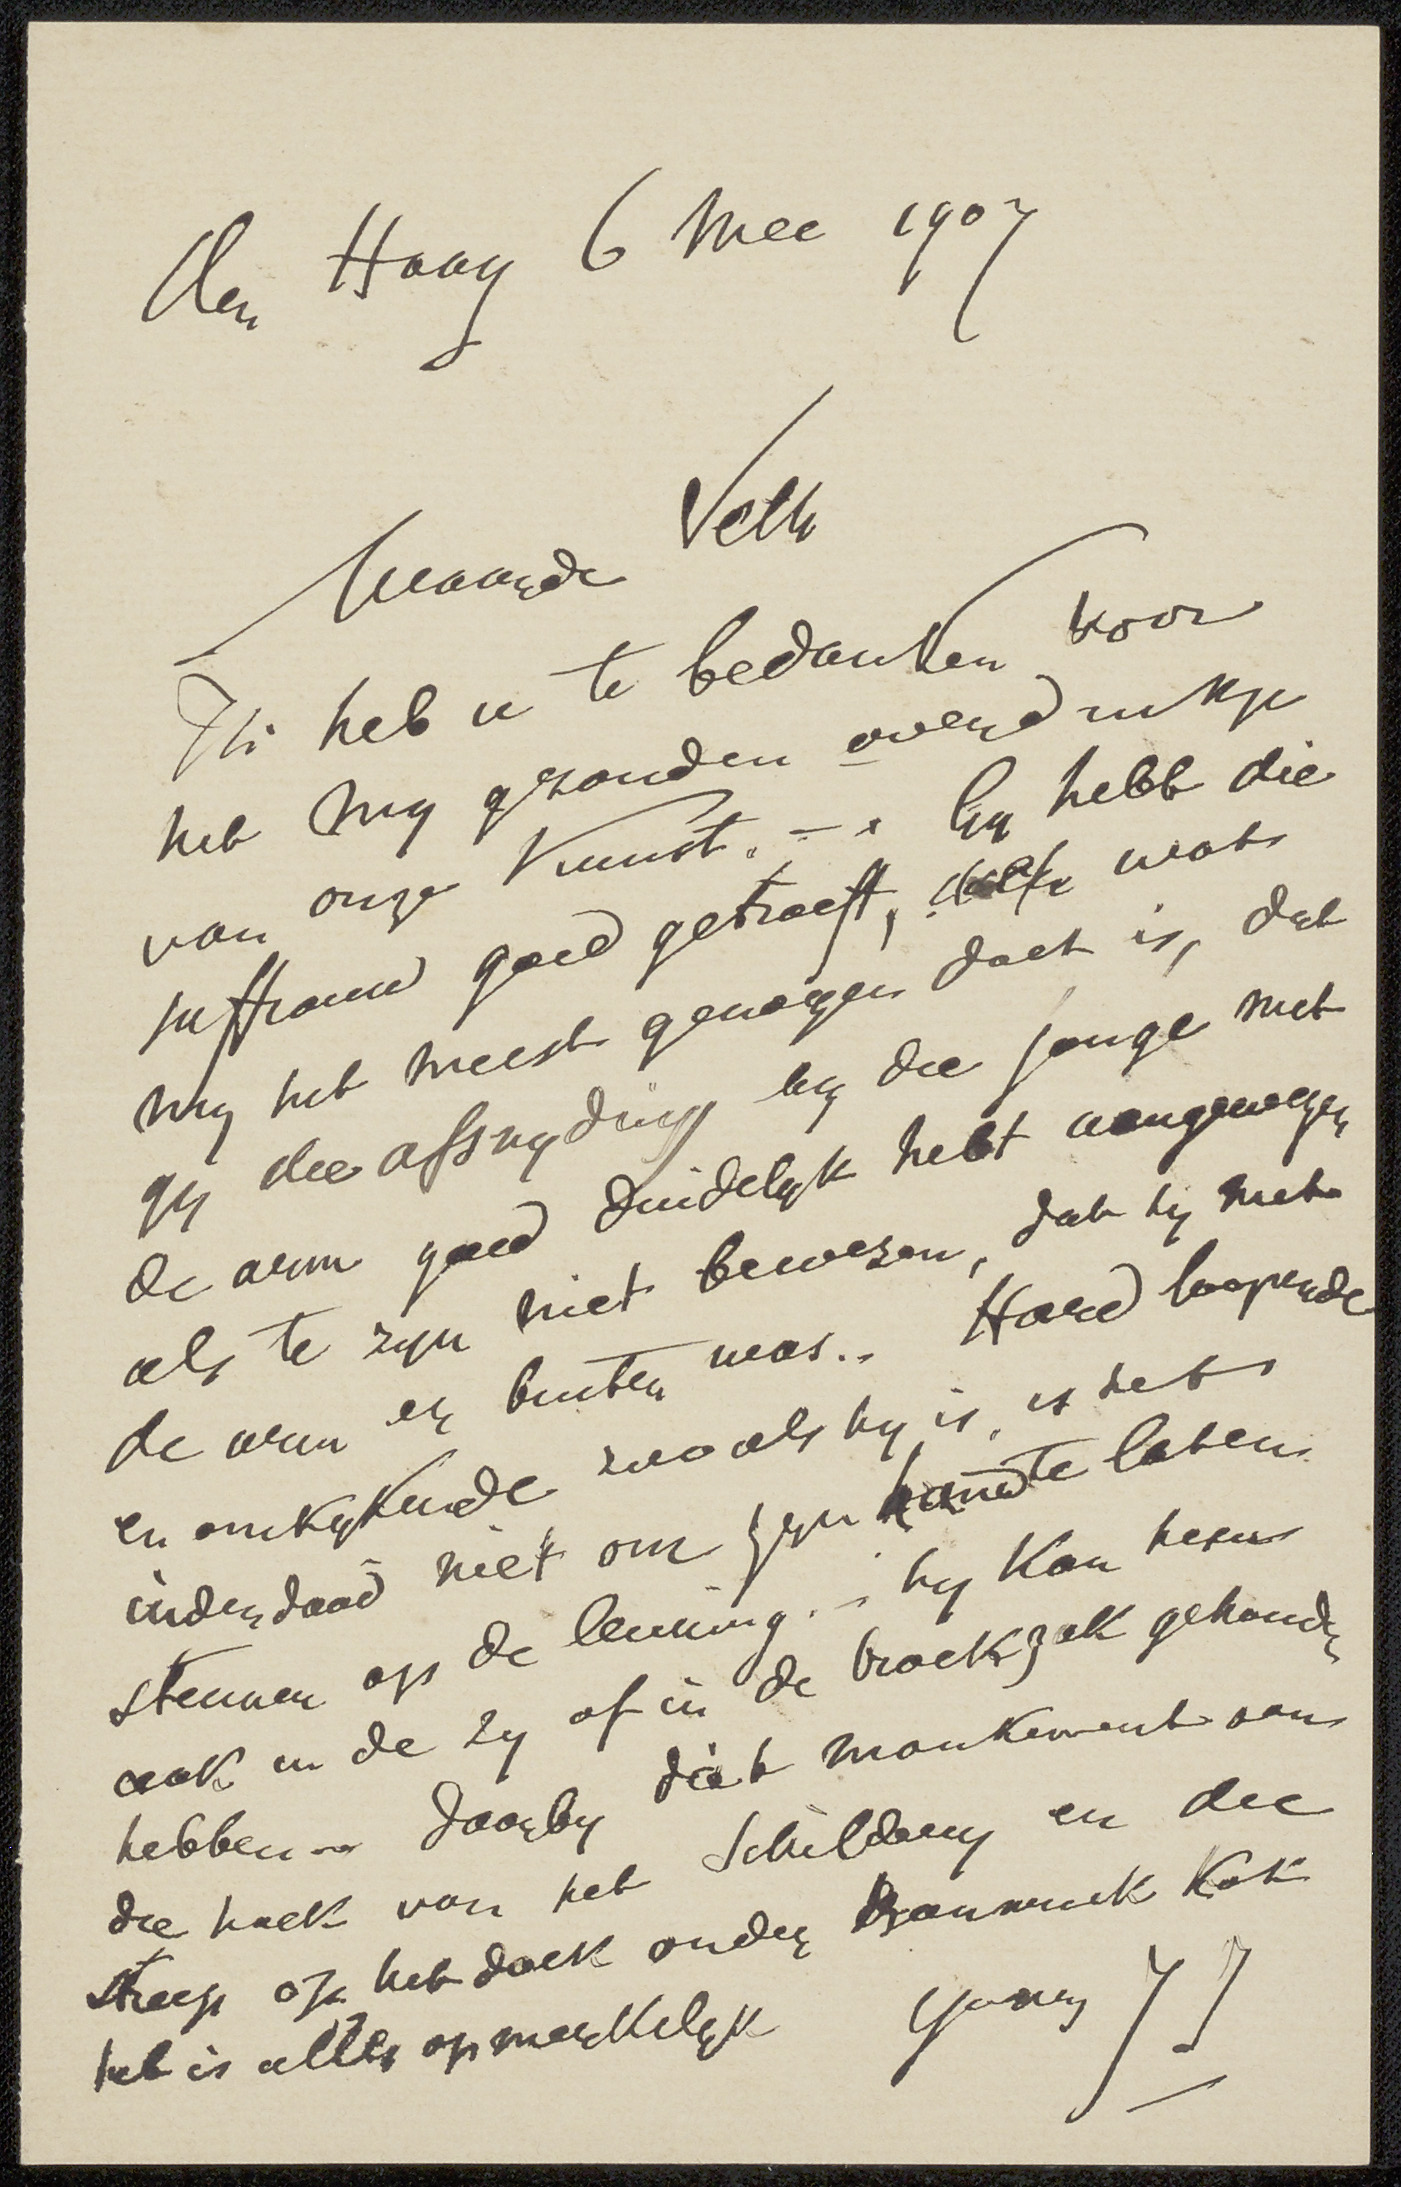 den Haag 6 Mei 1907
Waarde Veth
Ik heb u te bedanken voor
het my gezonden overdrukje
van onze Kunst. — Gy hebt die
juffrouw goed getroeft, wat
my het meest genoegen doet is, dat
gy die afsnyding by die jonge met
de arm goed duidelyk hebt aangewezen
als te zyn niet bewezen, dat hy met
de arm er buiten was.. Hard loopende
en omkykende zooals hy is, is het
inderdaad niet om zyn hand te laten
steunen op de leuning. — hy kan hem
ook in de zy of in de broekzak gehouden
hebben — daarby dat mankement aan
die hoek van het Schildery en die
streep op het doek onder Banninck Kok
het is alles opmerkelyk JJ